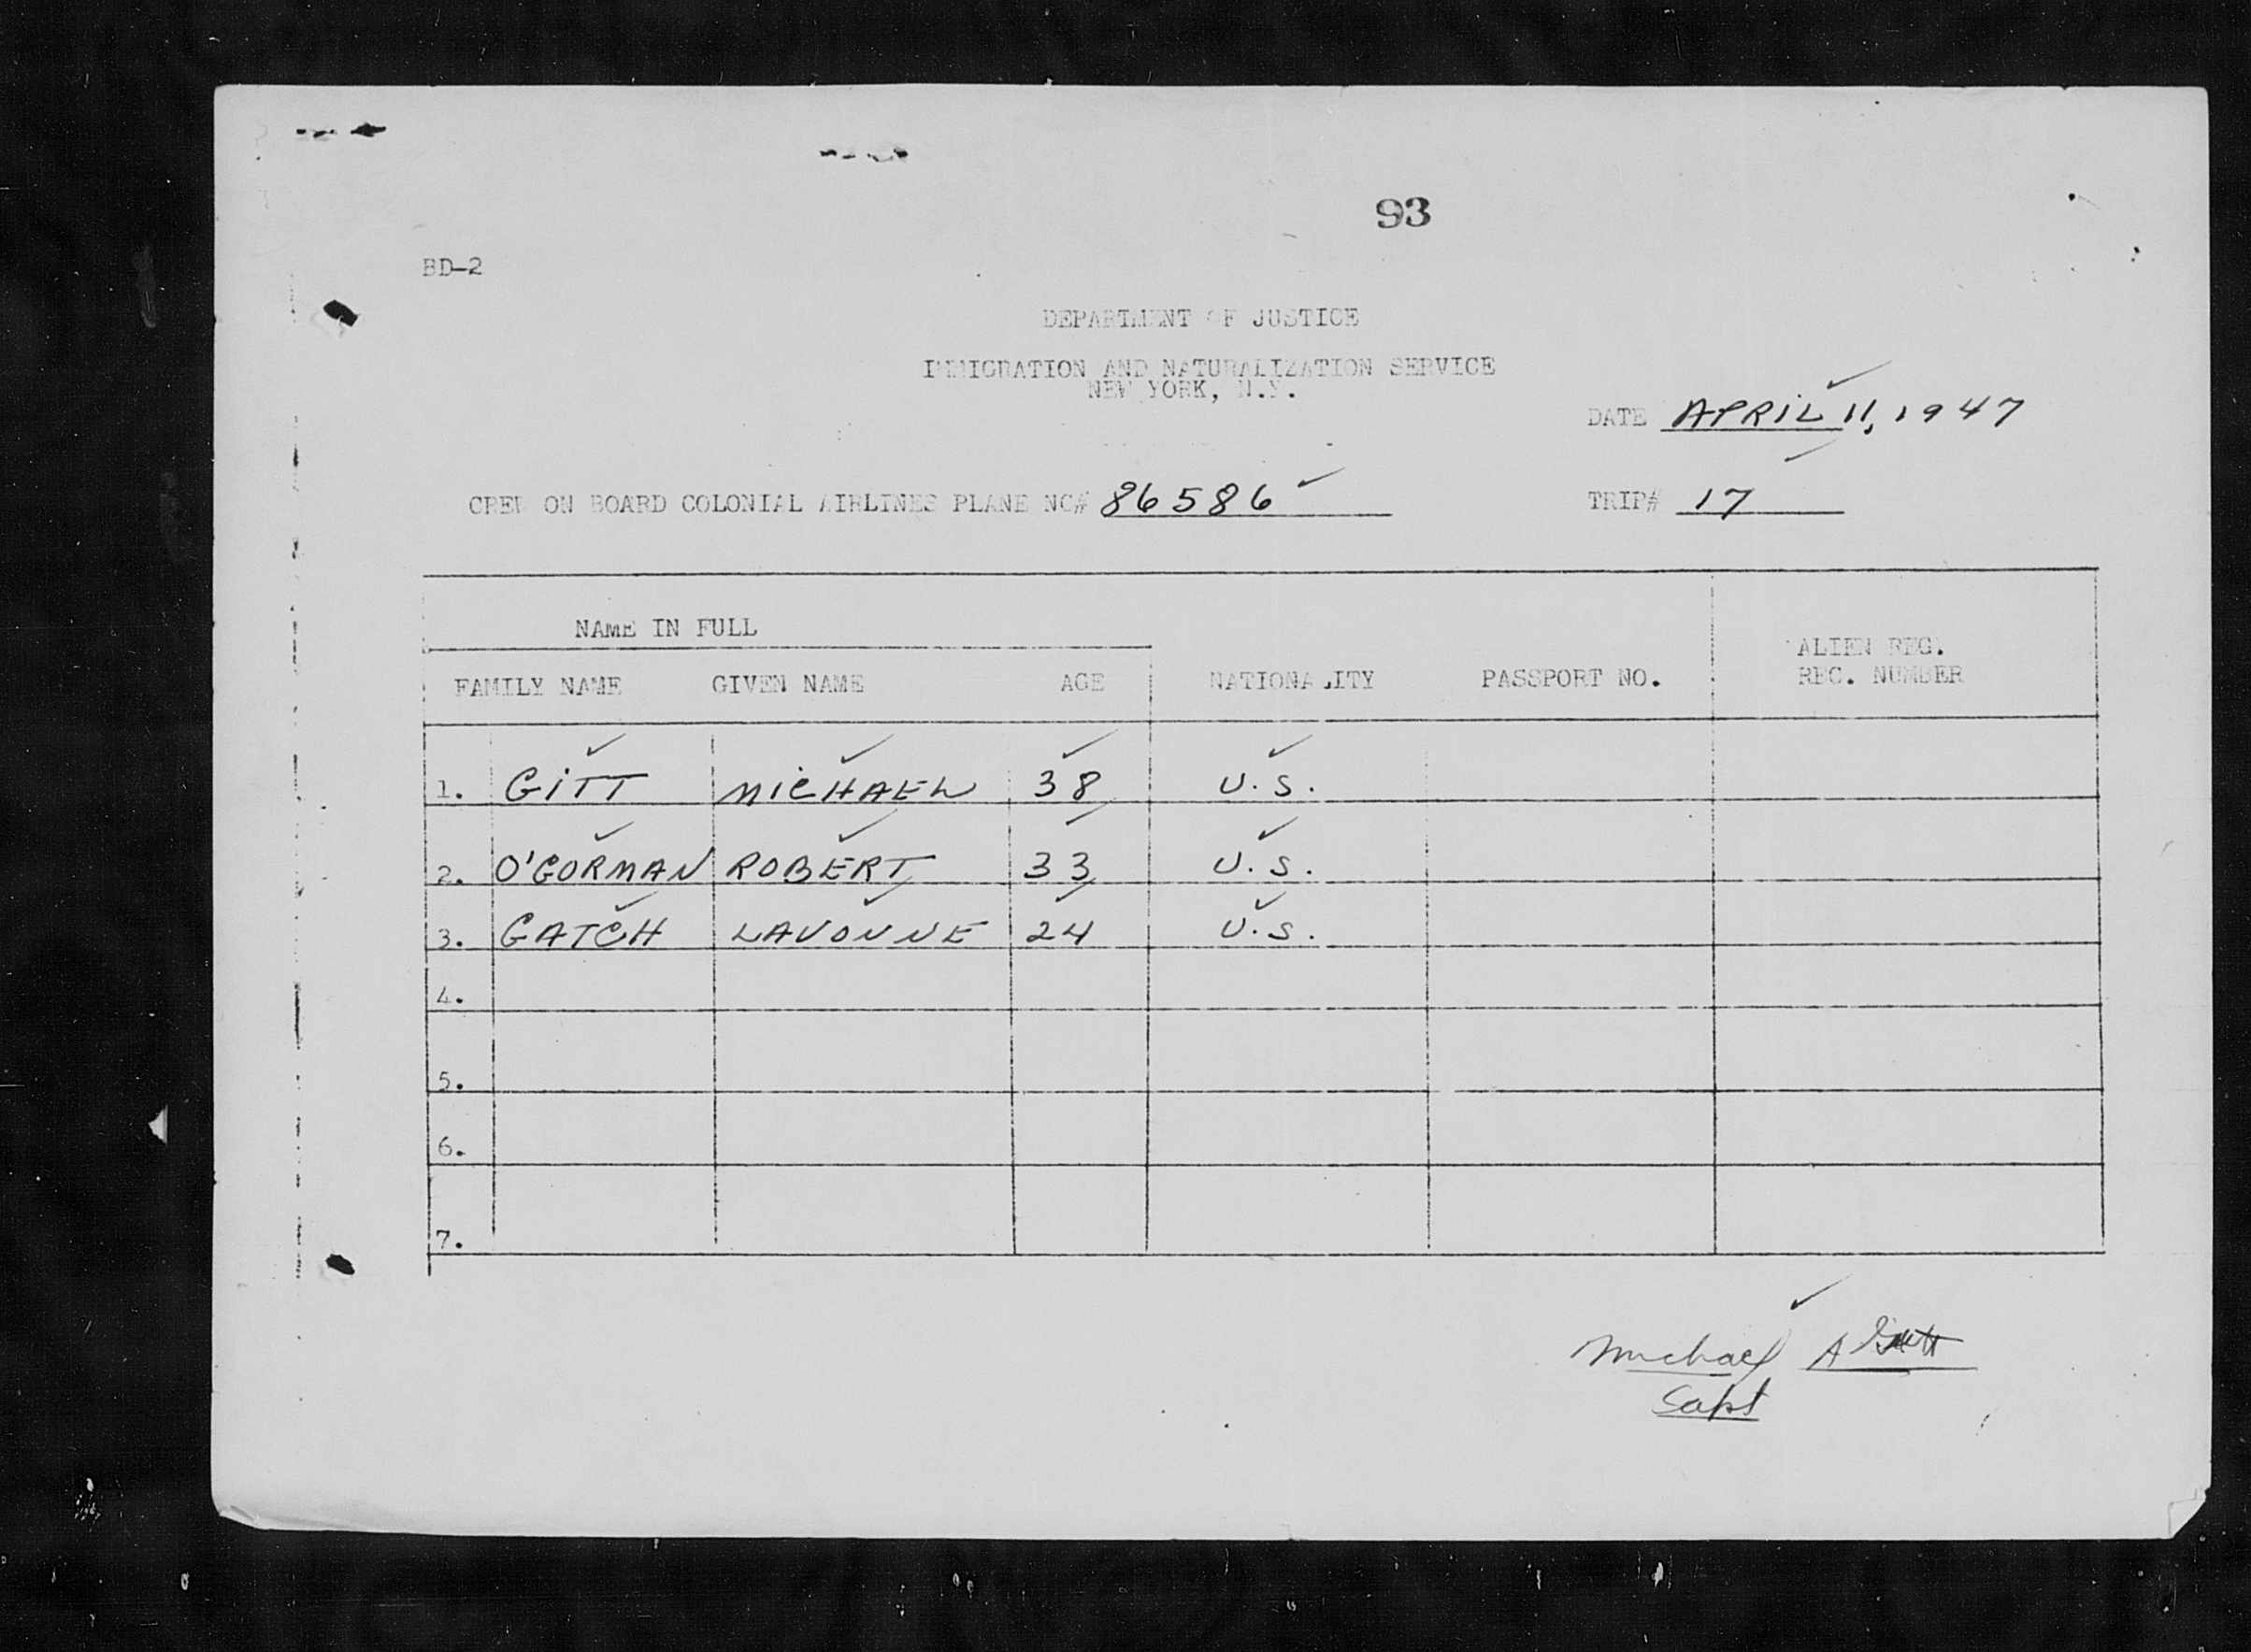 93
BD-2
DEPARTMENT OF JUSTICE
IMMIGRATION AND NATURALIZATION SERVICE
NEW YORK, N.Y.
DATE APRIL 11, 1947
CREW ON BOARD COLONIAL AIRLINES PLANE NC# 86586 TRIP# 17
NAME IN FULL
FAMILY NAME GIVEN NAME AGE NATIONALITY PASSPORT NO. ALIEN REG. REC. NUMBER
1. GITT MICHAEL 38 U.S.
2. O'GORMAN ROBERT 33 U.S.
3. GATCH LAVONNE 24 U.S.
4.
5.
6.
7.
Michael A Gitt
Capt